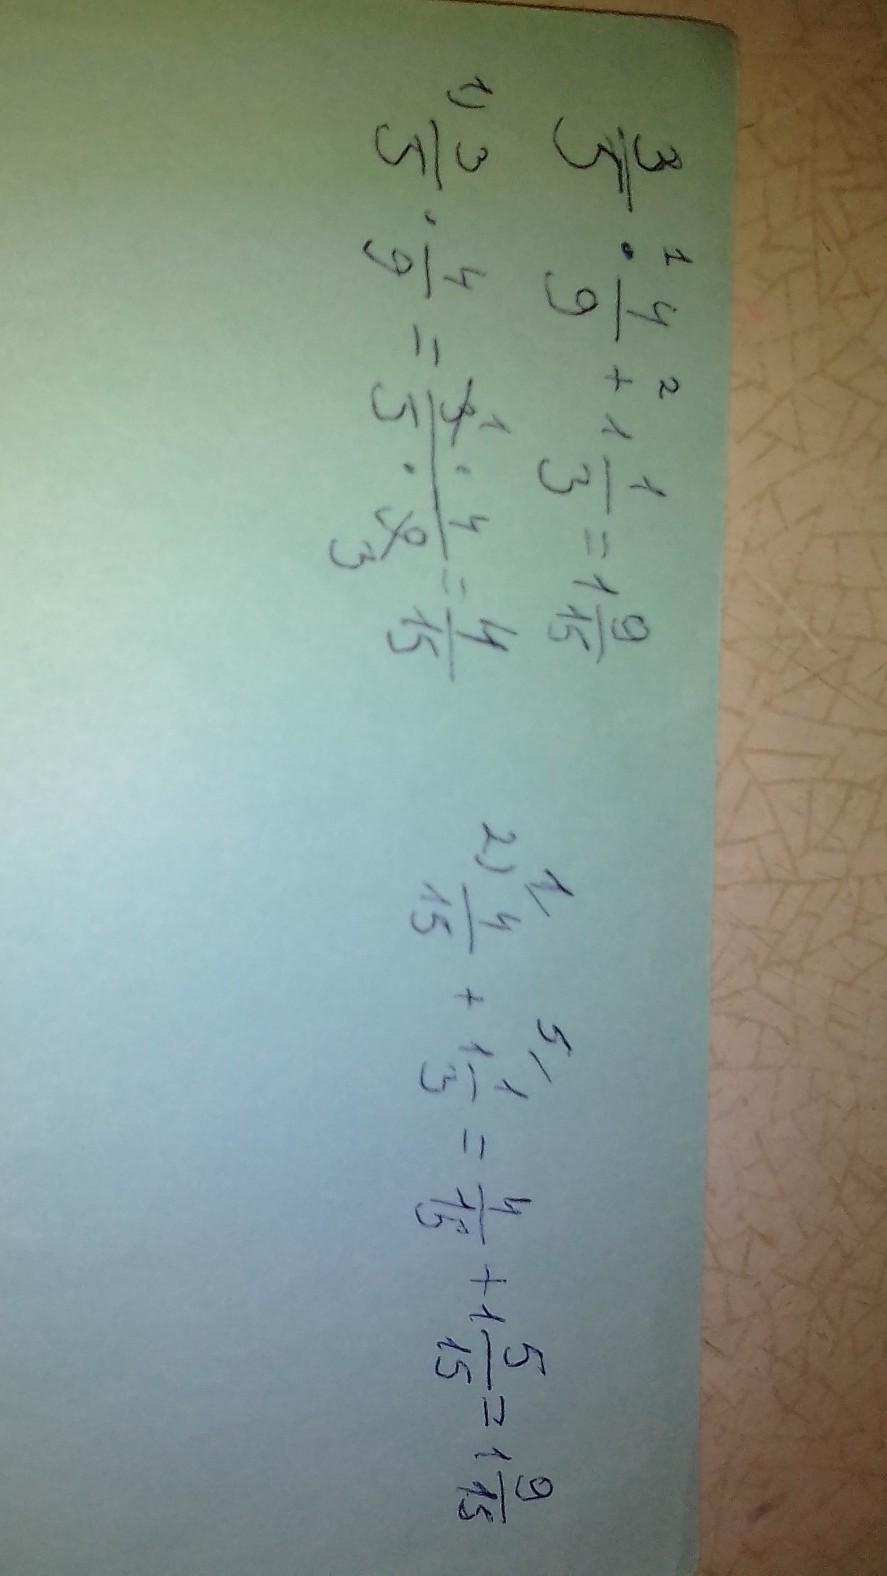 3/5 ·¹ 4/9 +² 1 1/3 = 1 9/15
1) 3/5 · 4/9 = 3¹ · 4 / 5 · 9₃ = 4/15
2) 4/15 ¹⁄ + 1 1/3 ⁵⁄ = 4/15 + 1 5/15 = 1 9/15